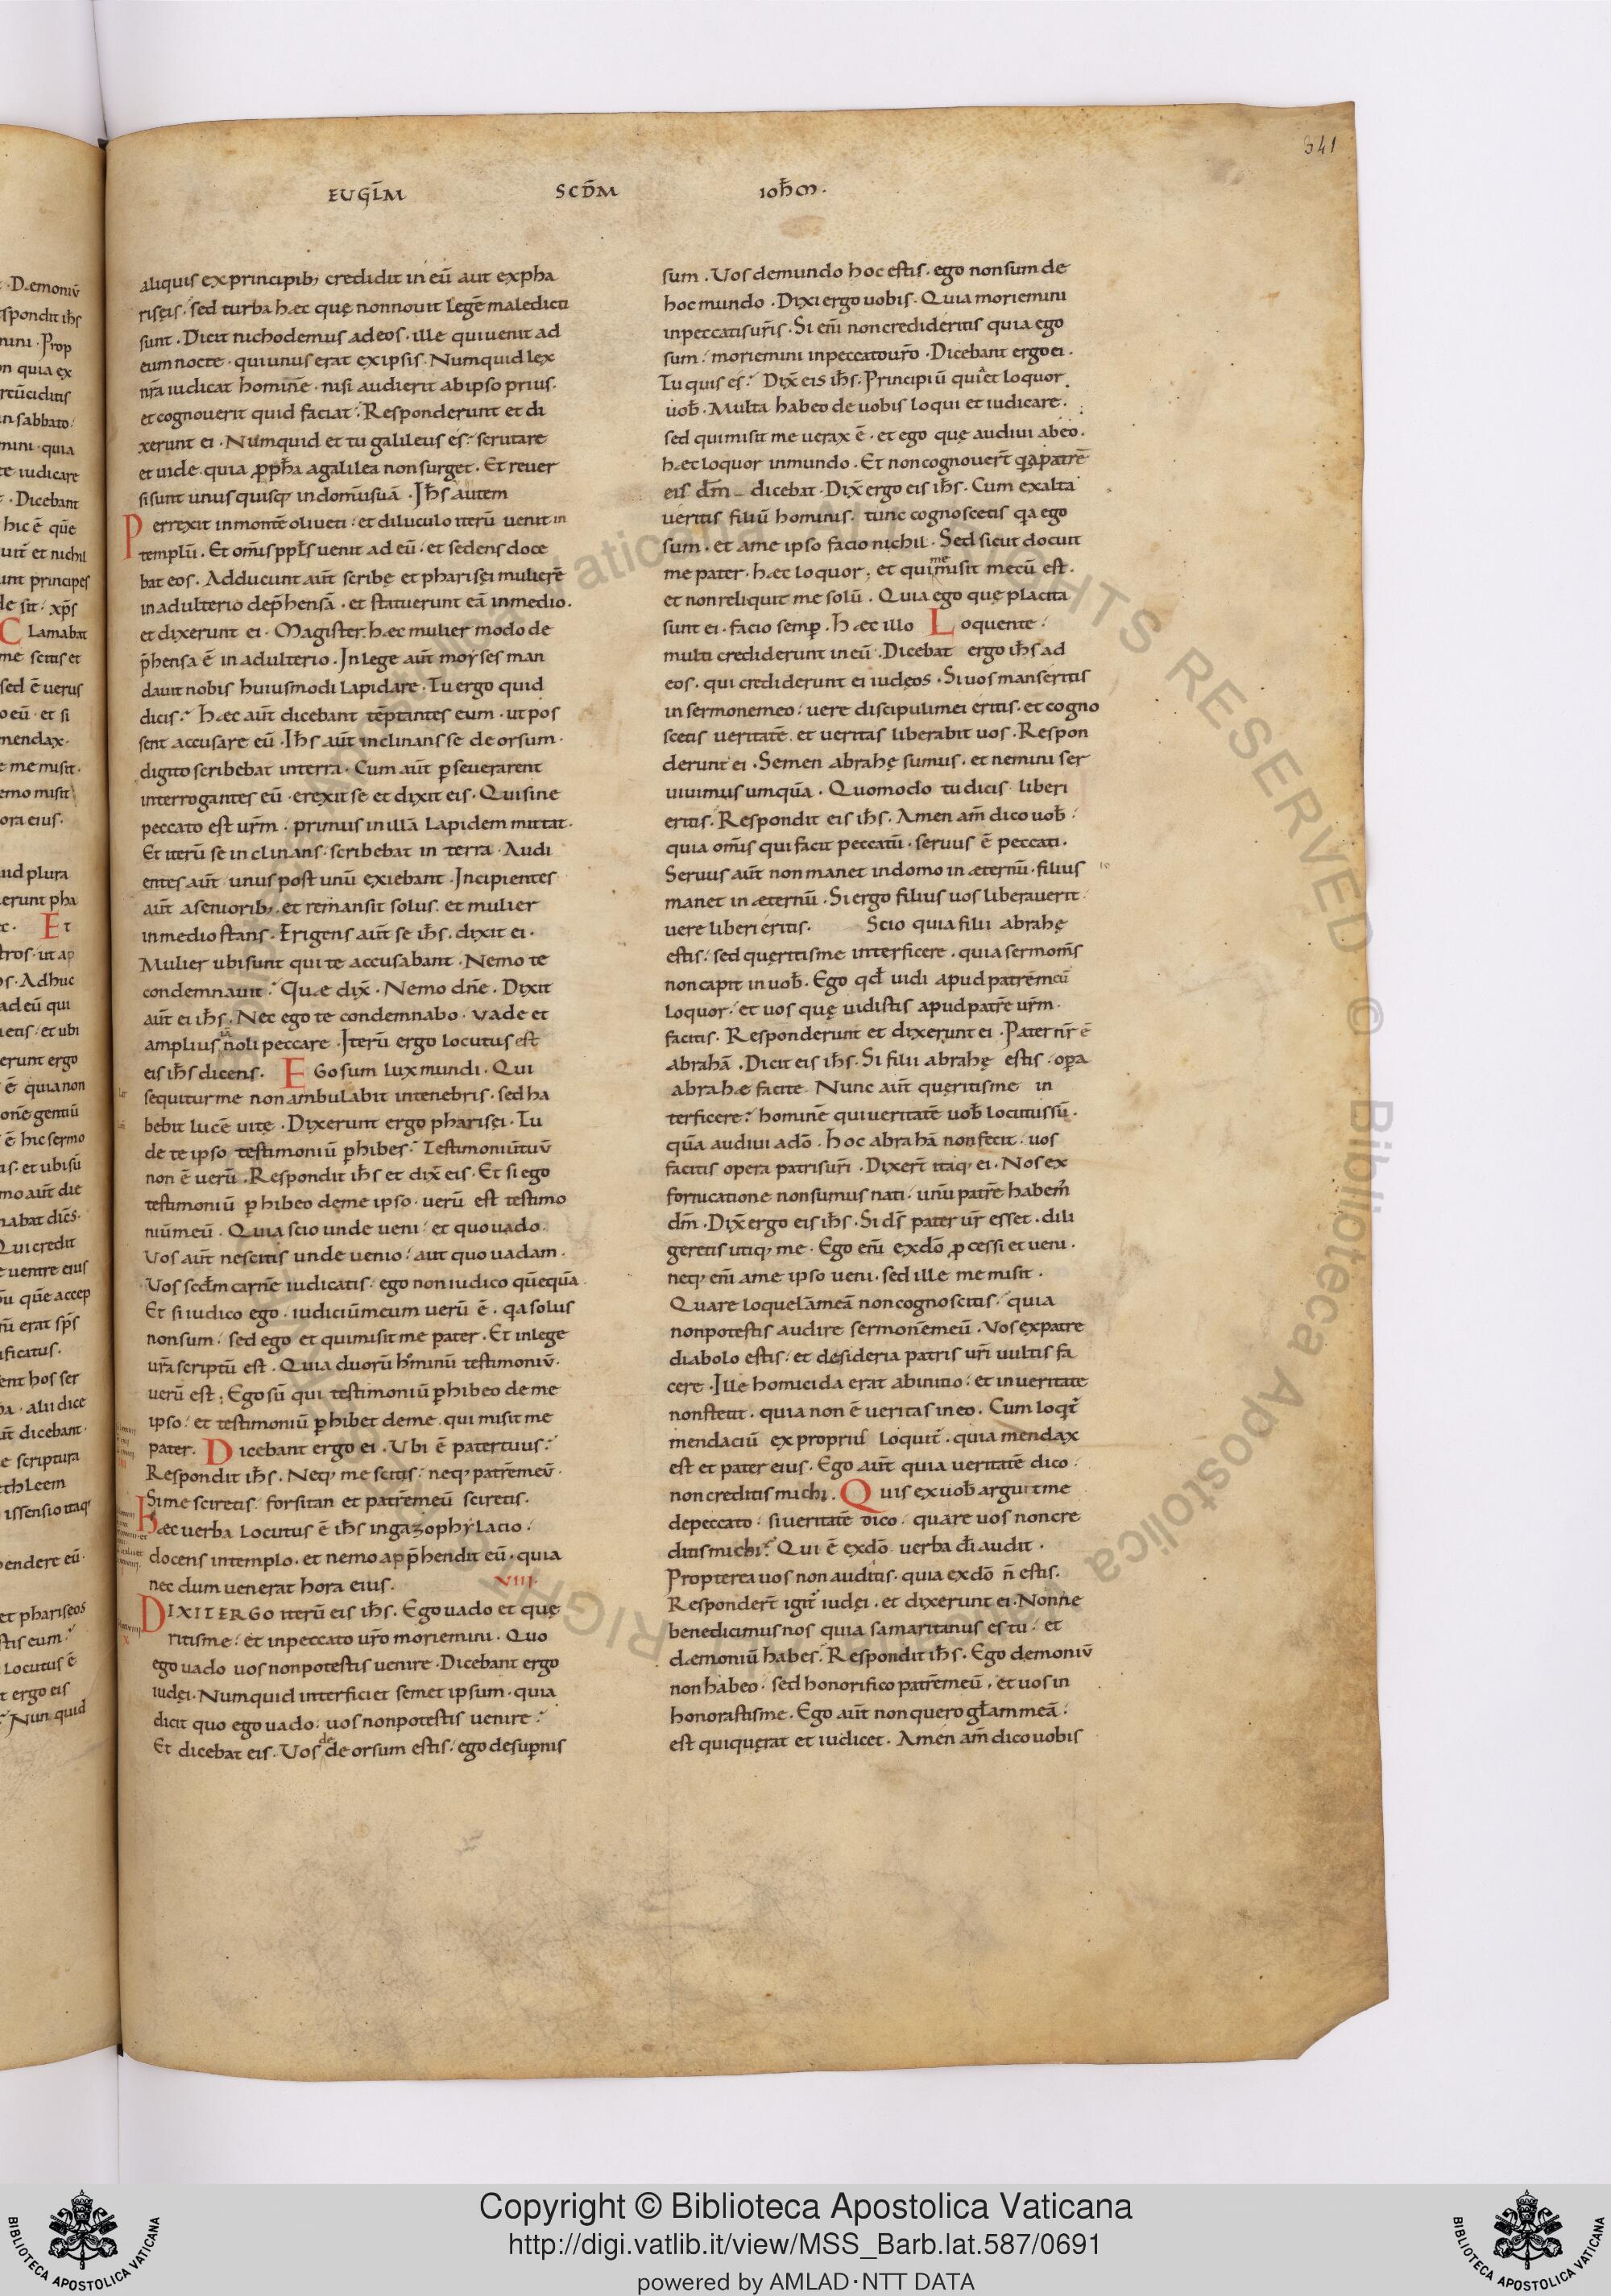 341
EUGL̄M SCD̄M IOH̄M.
aliquis ex principib; credidit in eū aut ex pha
risęis. sed turba hæc quę non nouit legē maledicti
sunt. Dicit nichodemus ad eos. ille qui uenit ad
eum nocte. qui unus erat ex ipsis. Numquid lex
nr̄a iudicat hominē. nisi audierit ab ipso prius.
et cognouerit quid faciat. Responderunt et di
xerunt ei. Numquid et tu galileus es. scrutare
et uide. quia ꝓph̄a a galilea non surget. Et reuer
si sunt unus quisq; in domū suā. Ih̄s autem
Perrexit in montē oliueti. et diluculo iterū uenit in
templū. Et om̄s ppl̄s uenit ad eū. et sedens doce
bat eos. Adducunt aūt scribę et pharisęi mulierē
in adulterio dep̄hensā. et statuerunt eā in medio.
et dixerunt ei. Magister. hæc mulier modo de
p̄hensa ē in adulterio. In lege aūt moyses man
dauit nobis huiusmodi lapidare. Tu ergo quid
dicis. Hæc aūt dicebant tēptantes eum. ut pos
sent accusare eū. Ih̄s aūt inclinans se deorsum.
digito scribebat in terra. Cum aūt ꝑseuerarent
interrogantes eū. erexit se et dixit eis. Qui sine
peccato est ur̄m. primus in illā lapidem mittat.
Et iterū se inclinans. scribebat in terra. Audi
entes aūt unus post unū exiebant. Incipientes
aūt a seniorib;. et remansit solus. et mulier
in medio stans. Erigens aūt se ih̄s. dixit ei.
Mulier ubi sunt qui te accusabant. Nemo te
condemnauit. Quæ dix̄. Nemo dn̄e. Dixit
aūt ei ih̄s. Nec ego te condemnabo. Vade et
amplius iā noli peccare. Iterū ergo locutus est
eis ih̄s dicens. Ego sum lux mundi. Qui
sequitur me non ambulabit in tenebris. sed ha
bebit lucē uitę. Dixerunt ergo pharisęi. Tu
de te ipso testimoniū ꝑhibes. Testimoniū tuū
non ē uerū. Respondit ih̄s et dix̄ eis. Et si ego
testimoniū ꝑhibeo de me ipso. uerū est testimo
niū meū. Quia scio unde ueni. et quo uado.
Vos aūt nescitis unde uenio. aut quo uadam.
Vos scd̄m carnē iudicatis. ego non iudico quēquā.
Et si iudico ego. iudiciū meum uerū ē. qa solus
non sum. sed ego et qui misit me pater. Et in lege
ur̄a scriptū est. Quia duorū hominū testimoniū.
uerū est. Ego sū qui testimoniū ꝑhibeo de me
ipso. et testimoniū ꝑhibet de me. qui misit me
pater. Dicebant ergo ei. Vbi ē pater tuus.
Respondit ih̄s. Neq; me scitis. neq; patrē meū.
Si me sciretis. forsitan et patrē meū sciretis.
Hæc uerba locutus ē ih̄s in gazophylatio.
docens in templo. et nemo app̄hendit eū. quia
nec dum uenerat hora eius. VIII.
DIXIT ERGO iterū eis ih̄s. Ego uado et quę
ritis me. et in peccato ur̄o moriemini. Quo
ego uado uos non potestis uenire. Dicebant ergo
iudęi. Numquid interficiet semet ipsum. quia
dicit quo ego uado. uos non potestis uenire.
Et dicebat eis. Vos de deorsum estis. ego de suꝑnis
sum. Vos de mundo hoc estis. ego non sum de
hoc mundo. Dixi ergo uobis. Quia moriemini
in peccatis ur̄is. Si em̄ non credideritis quia ego
sum. moriemini in peccato ur̄o. Dicebant ergo ei.
Tu quis es. Dix̄ eis ih̄s. Principiū qui et loquor
uob̄. Multa habeo de uobis loqui et iudicare.
sed qui misit me uerax ē. et ego quę audiui ab eo.
hæc loquor in mundo. Et non cognouer̄t qa patrē
eis dm̄ dicebat. Dix̄ ergo eis ih̄s. Cum exalta
ueritis filiū hominis. tunc cognoscetis qa ego
sum. et a me ipso facio nichil. Sed sicut docuit
me pater. hæc loquor. et qui me misit mecū est.
et non reliquit me solū. Quia ego quę placita
sunt ei. facio semꝑ. Hæc illo Loquente.
multi crediderunt in eū. Dicebat ergo ih̄s ad
eos. qui crediderunt ei iudęos. Si uos manseritis
in sermone meo. uere discipuli mei eritis. et cogno
scetis ueritatē. et ueritas liberabit uos. Respon
derunt ei. Semen abrahę sumus. et nemini ser
uiuimus umquā. Quomodo tu dicis liberi
eritis. Respondit eis ih̄s. Amen am̄ dico uob̄.
quia om̄is qui facit peccatū. seruus ē peccati.
Seruus aūt non manet in domo in æternū. filius
manet in æternū. Si ergo filius uos liberauerit.
uere liberi eritis. Scio quia filii abrahę
estis. sed queritis me interficere. quia sermo m̄s
non capit in uob̄. Ego qd̄ uidi apud patrē meū
loquor. et uos quę uidistis apud patrē ur̄m.
facitis. Responderunt et dixerunt ei. Pater nr̄ ē
abrahā. Dicit eis ih̄s. Si filii abrahę estis. oꝑa
abrahæ facite. Nunc aūt quęritis me in
terficere. hominē qui ueritatē uob̄ locutus sū.
quā audiui a dō. hoc abrahā non fecit. uos
facitis opera patris ur̄i. Dixer̄t itaq; ei. Nos ex
fornicatione non sumus nati. unū patrē habem̄
dm̄. Dix̄ ergo eis ih̄s. Si ds̄ pater ur̄ esset. dili
geretis utiq; me. Ego em̄ ex dō ꝓcessi et ueni.
neq; em̄ a me ipso ueni. sed ille me misit.
Quare loquelā meā non cognoscitis. quia
non potestis audire sermonē meū. Vos ex patre
diabolo estis. et desideria patris ur̄i uultis fa
cere. Ille homicida erat ab initio. et in ueritate
non stetit. quia non ē ueritas in eo. Cum loqt̄
mendaciū ex propriis loquit̄. quia mendax
est et pater eius. Ego aūt quia ueritatē dico.
non creditis michi. Quis ex uob̄ arguit me
de peccato. si ueritatē dico. quare uos non cre
ditis michi. Qui ē ex dō uerba dī audit.
Propterea uos non auditis. quia ex dō n̄ estis.
Responder̄t igit̄ iudęi. et dixerunt ei. Nonne
benedicimus nos quia samaritanus es tu. et
dæmoniū habes. Respondit ih̄s. Ego demoniū
non habeo. sed honorifico patrē meū. et uos in
honorastis me. Ego aūt non quero gl̄am meā.
est qui quęrat et iudicet. Amen am̄ dico uobis
Copyright © Biblioteca Apostolica Vaticana
http://digi.vatlib.it/view/MSS_Barb.lat.587/0691
powered by AMLAD·NTT DATA
BIBLIOTECA APOSTOLICA VATICANA
BIBLIOTECA APOSTOLICA VATICANA